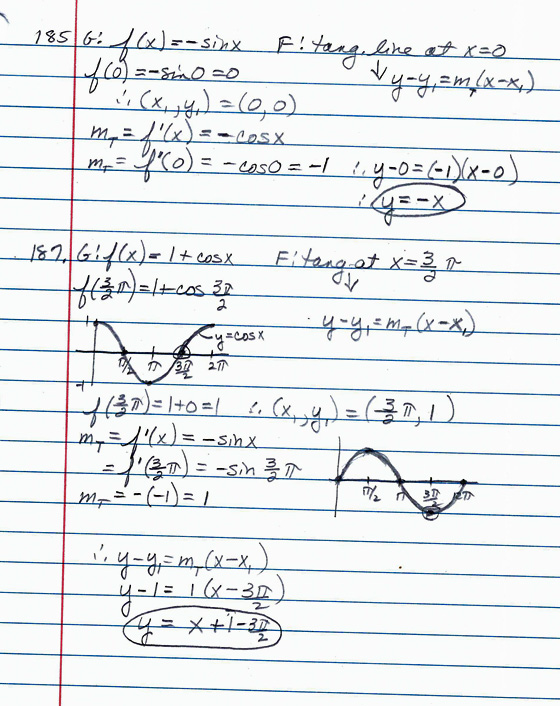 185 G: f(x) = -sinx F: tang. line at x=0
f(0) = -sin0 = 0 ↓ y-y₁ = m_T(x-x₁)
∴ (x₁, y₁) = (0, 0)
m_T = f'(x) = -cosx
m_T = f'(0) = -cos0 = -1 ∴ y-0 = (-1)(x-0)
∴ y = -x
187. G: f(x) = 1 + cosx F: tang at x = 3/2 π
f(3/2 π) = 1 + cos 3π/2 ↓
y-y₁ = m_T(x-x₁)
1 y=cosx
π/2 π 3π/2 2π
-1
f(3/2 π) = 1+0 = 1 ∴ (x₁, y₁) = (3/2 π, 1)
m_T = f'(x) = -sinx
= f'(3/2 π) = -sin 3/2 π
π/2 π 3π/2 2π
m_T = -(-1) = 1
∴ y-y₁ = m_T(x-x₁)
y-1 = 1(x - 3π/2)
y = x + 1 - 3π/2